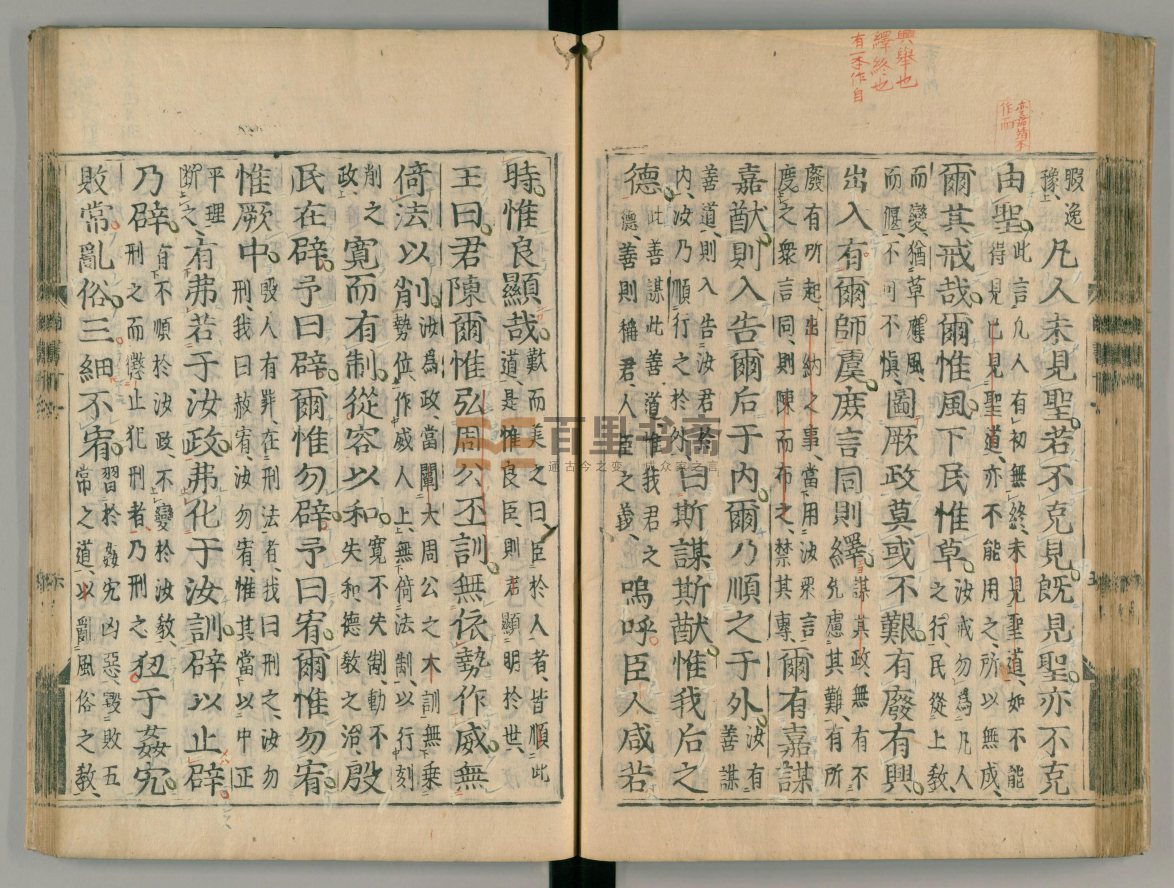 興舉也
繹終也
有一本作自
暇逸
豫
凡人未見聖若不克見旣見聖亦不克
由聖
此言凡人有初無終未見聖道如不能
得見已見聖道亦不能用之所以無成
爾其戒哉爾惟風下民惟草
汝戒勿爲凡人
之行民從上敎
而變猶草應風
而偃不可不愼
圖厥政莫或不艱有廢有興
出入有爾師虞庶言同則繹
謀其政無有不
先慮其難有所
廢有所起出納之事當用汝衆言
度之衆言同則陳而布之禁其專
爾有嘉謀
嘉猷則入告爾后于内爾乃順之于外
汝有
善謀
善道則入告汝君於
内汝乃順行之於外
曰斯謀斯猷惟我后之
德
此善謀此善道惟我君之
德善則稱君人臣之義
嗚呼臣人咸若
時惟良顯哉
歎而美之曰臣於人者皆順此
道是惟良臣則君顯明於世
王曰君陳爾惟弘周公丕訓無依勢作威無
倚法以削
汝爲政當闡大周公之大訓無乘
勢位作威人上無倚法制以行刻
削之
政
寬而有制從容以和
寬不失制動不
失和德敎之治
殷
民在辟予曰辟爾惟勿辟予曰宥爾惟勿宥
惟厥中
殷人有罪在刑法者我曰刑之汝勿
刑我曰赦宥汝勿宥惟其當以中正
平理
斷之
有弗若于汝政弗化于汝訓辟以止辟
乃辟
有不順於汝政不變於汝敎
刑之而懲止犯刑者乃刑之
狃于姦宄
敗常亂俗三細不宥
習於姦宄凶惡毀敗五
常之道以亂風俗之敎
百里书斋
通古今之变 众家之言